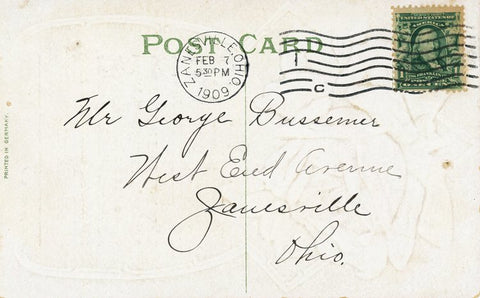 POST CARD
ZANESVILLE, OHIO.
FEB 7
5 30 PM
1909
C
UNITED STATES OF
AMERICA
FRANKLIN
Mr George Bussemer
West End Avenue
Zanesville
Ohio.
PRINTED IN GERMANY.